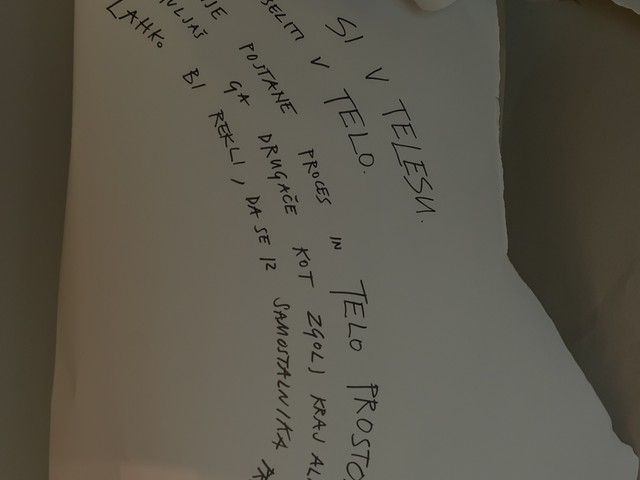 SI V TELESU.
SELITI V TELO.
JE POSTANE PROCES IN TELO PROSTO
VLJAŠ GA DRUGAČE KOT ZGOLJ KRAJ AL
LAHKO BI REKLI, DA SE IZ SAMOSTALNIKA